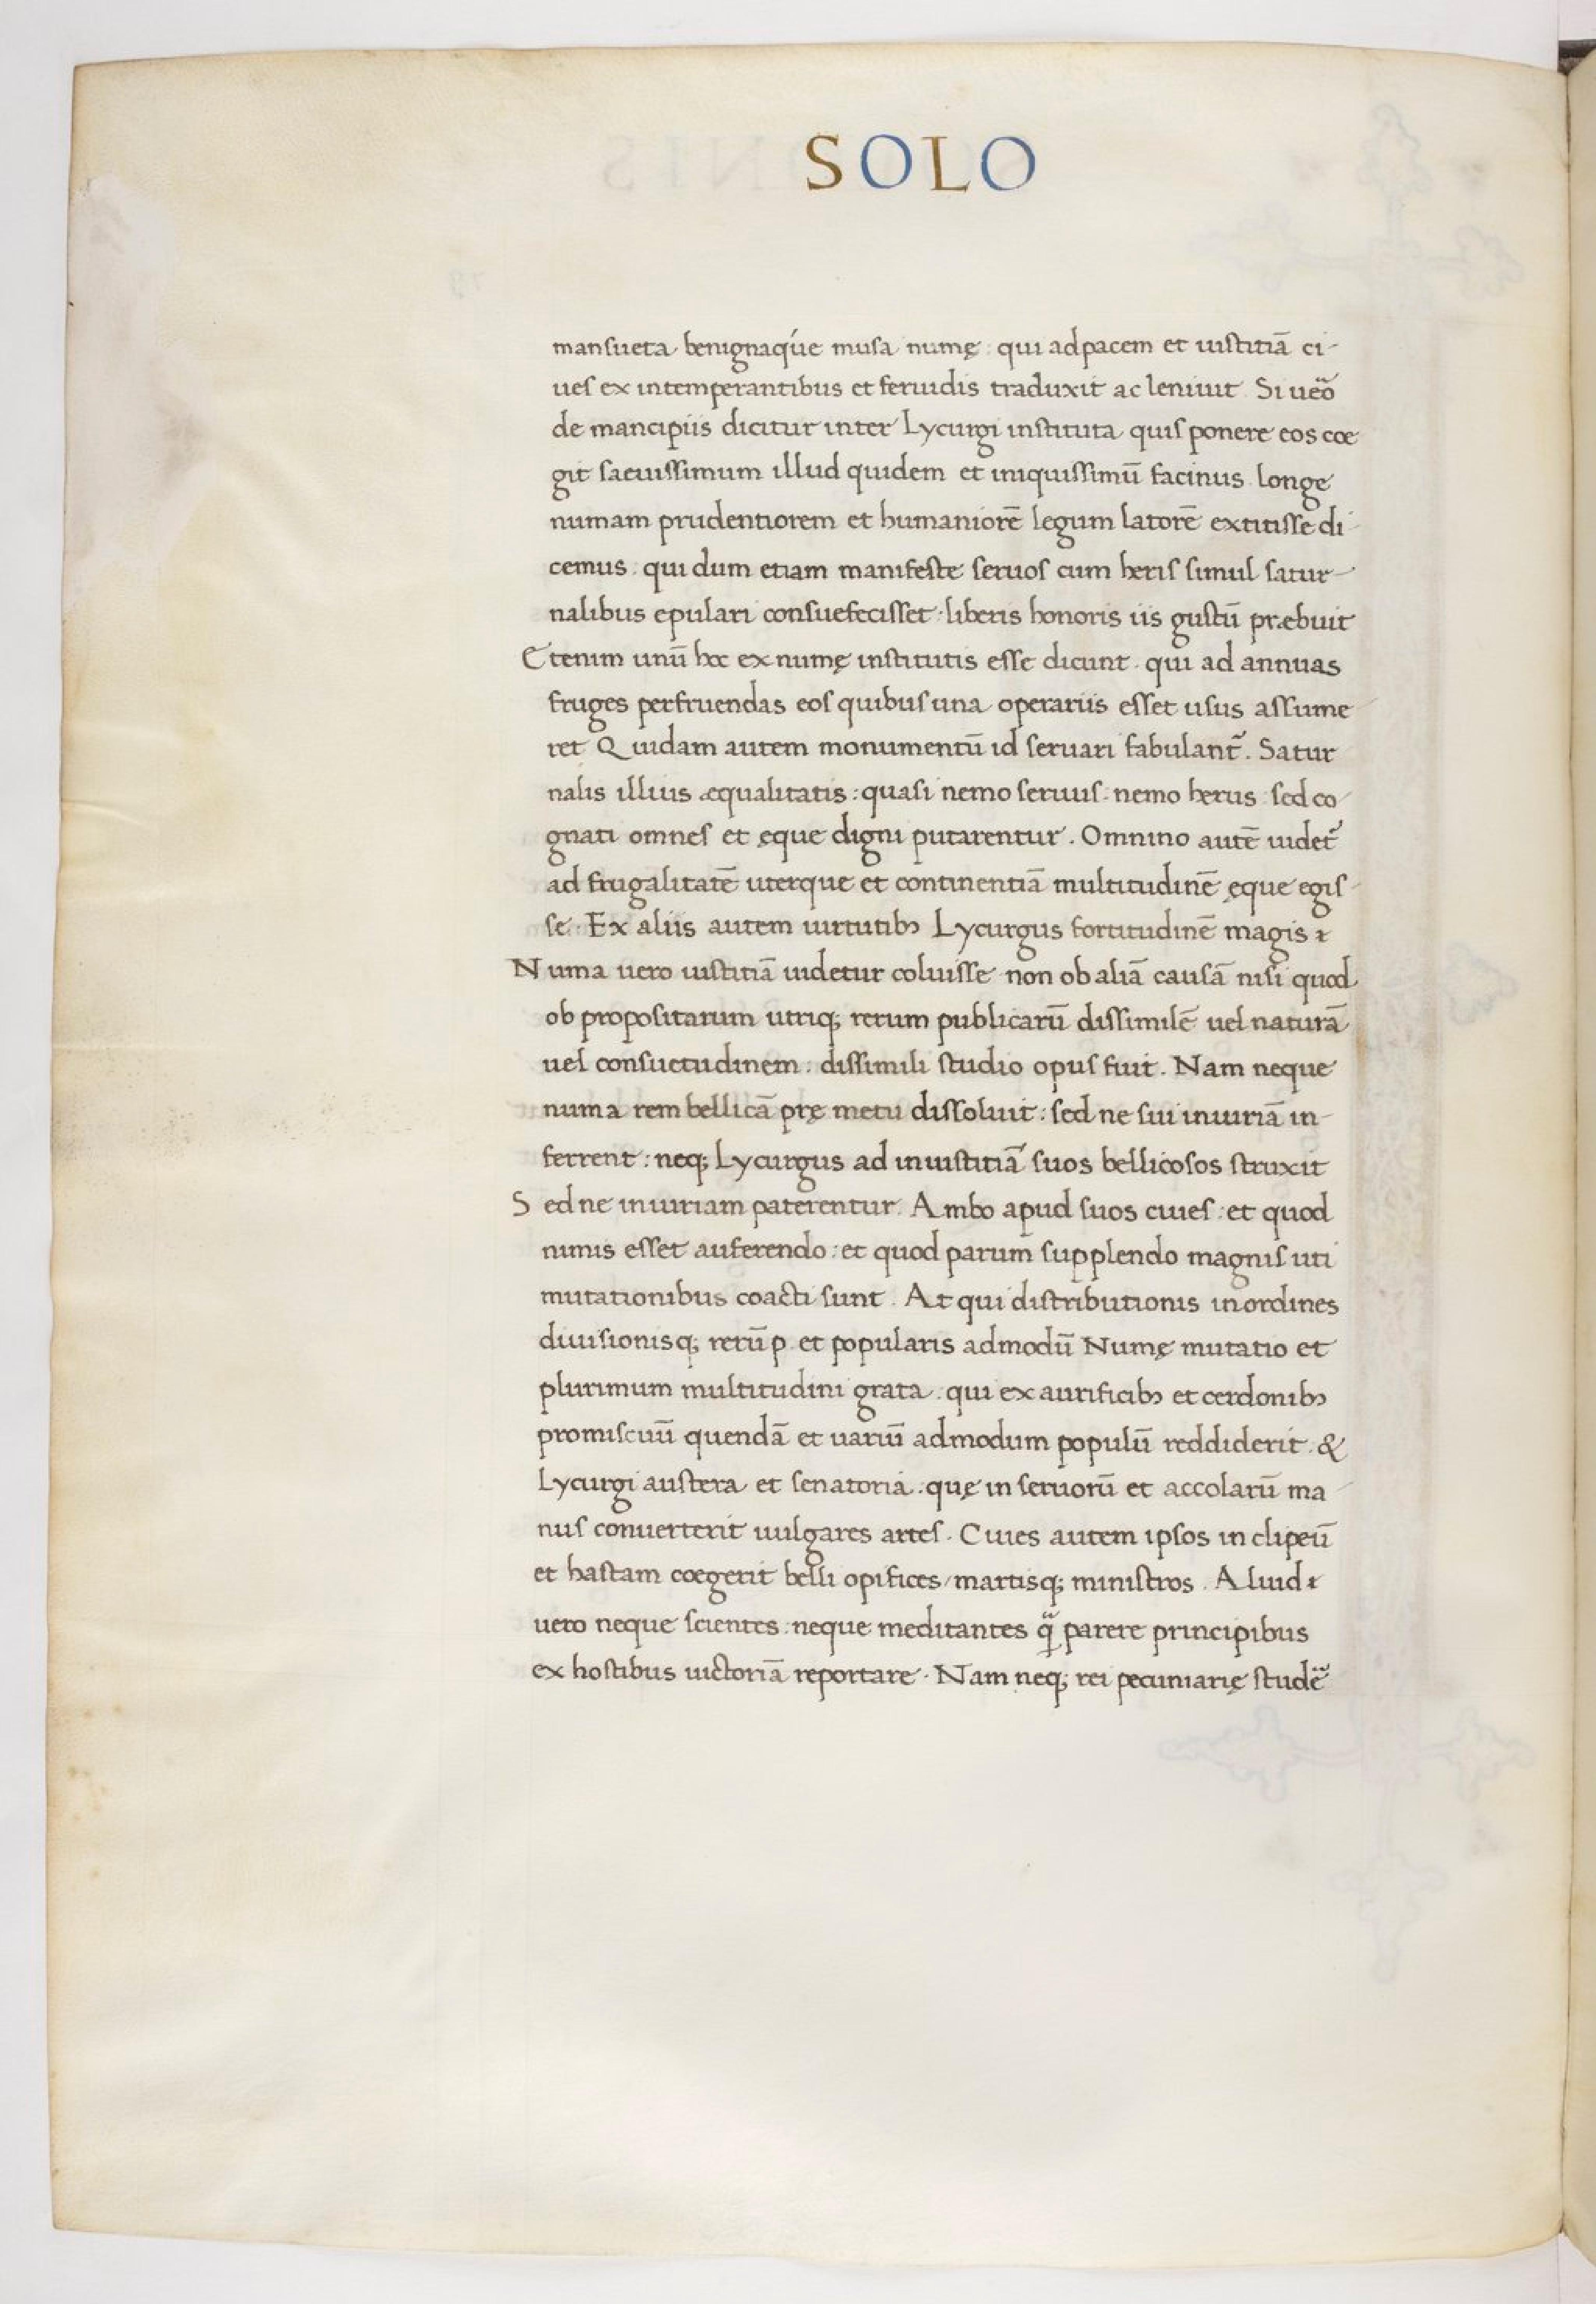 SOLO
mansueta benignaq́ue musa numę: qui ad pacem et iustitiā ci-
ues ex intemperantibus et feruidis traduxit ac leniuit. Si uēo
de mancipiis dicitur inter Lycurgi instituta quis ponere eos coe
git saeuissimum illud quidem et iniquissimū facinus longe
numam prudentiorem et humaniorē legum latorē extitisse di-
cemus: qui dum etiam manifeste seruos cum heris simul satur-
nalibus epulari consuefecisset: liberis honoris iis gustū præbuit
Etenim unū hoc ex numę institutis esse dicunt. qui ad annuas
fruges perfruendas eos quibus una operariis esset usus assume
ret Quidam autem monumentū id seruari fabulant᷑. Satur
nalis illius æqualitatis: quasi nemo seruus: nemo herus: sed co
gnati omnes et ęque digni putarentur. Omnino autē uidet᷑
ad frugalitatē uterque et continentiā multitudinē ęque egis-
se. Ex aliis autem uirtutibꝫ Lycurgus fortitudinē magis ⁊
Numa uero iustitiā uidetur coluisse non ob aliā causā nisi quod
ob propositarum utriq; rerum publicarū dissimilē uel naturā
uel consuetudinem: dissimili studio opus fuit. Nam neque
numa rem bellicā prę metu dissoluit: sed ne sui iniuriā in-
ferrent: neq; Lycurgus ad iniustitiā suos bellicosos struxit
Sed ne iniuriam paterentur. Ambo apud suos ciues: et quod
nimis esset auferendo: et quod parum supplendo magnis uti
mutationibus coacti sunt. At qui distributionis in ordines
diuisionisq; rerū p. et popularis admodū Numę mutatio et
plurimum multitudini grata: qui ex aurificibꝫ et cerdonibꝫ
promiscuū quendā et uariū admodum populū reddiderit. &
Lycurgi austera et senatoria: quę in seruorū et accolarū ma-
nus conuerterit uulgares artes. Ciues autem ipsos in clipeū
et hastam coegerit belli opifices/martisq; ministros. Aliud ⁊
uero neque scientes: neque meditantes qᷓ parere principibus
ex hostibus uictoriā reportare. Nam neq; rei pecuniarię studē